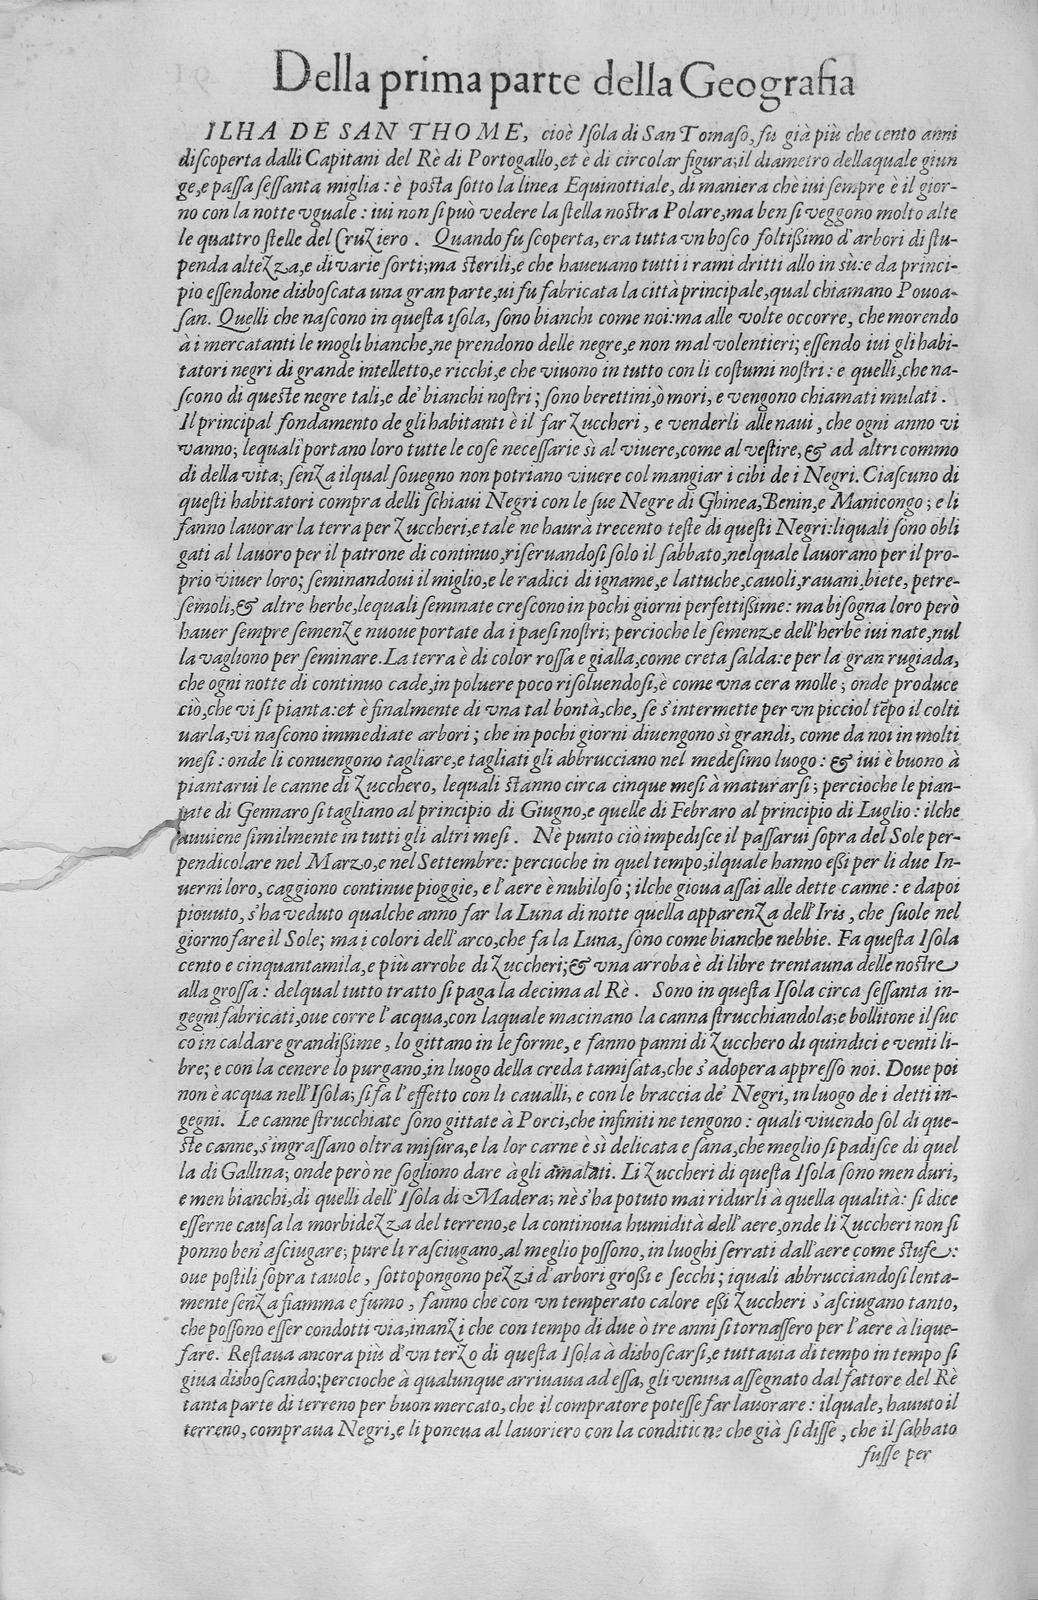 Della prima parte della Geografia
ILHA DE SAN THOME, cioè Isola di San Tomaso, fu già più che cento anni
discoperta dalli Capitani del Rè di Portogallo, et è di circolar figura; il diametro dellaquale giun
ge, e passa sessanta miglia: è posta sotto la linea Equinottiale, di maniera chè iui sempre è il gior-
no con la notte vguale: iui non si può vedere la stella nostra Polare, ma ben si veggono molto alte
le quattro stelle del Cruziero. Quando fu scoperta, era tutta vn bosco foltißimo d'arbori di stu-
penda altezza, e di varie sorti; ma sterili, e che haueuano tutti i rami dritti allo in sù: e da princi-
pio essendone disboscata una gran parte, ui fu fabricata la città principale, qual chiamano Pouoa-
san. Quelli che nascono in questa isola, sono bianchi come noi: ma alle volte occorre, che morendo
à i mercatanti le mogli bianche, ne prendono delle negre, e non mal volentieri; essendo iui gli habi-
tatori negri di grande intelletto, e ricchi, e che viuono in tutto con li costumi nostri: e quelli, che na-
scono di queste negre tali, e de' bianchi nostri; sono berettini, ò mori, e vengono chiamati mulati.
Il principal fondamento de gli habitanti è il far Zuccheri, e venderli alle naui, che ogni anno vi
vanno; lequali portano loro tutte le cose necessarie sì al viuere, come al vestire, & ad altri commo
di della vita; senza ilqual souegno non potriano viuere col mangiar i cibi de i Negri. Ciascuno di
questi habitatori compra delli schiaui Negri con le sue Negre di Ghinea, Benin, e Manicongo; e li
fanno lauorar la terra per Zuccheri, e tale ne haurà trecento teste di questi Negri: liquali sono obli
gati al lauoro per il patrone di continuo, riseruandosi solo il sabbato, nelquale lauorano per il pro-
prio viuer loro; seminandoui il miglio, e le radici di igname, e lattuche, cauoli, rauani, biete, petre-
semoli, & altre herbe, lequali seminate crescono in pochi giorni perfettißime: ma bisogna loro però
hauer sempre semenze nuoue portate da i paesi nostri; percioche le semenze dell'herbe iui nate, nul
la vagliono per seminare. La terra è di color rossa e gialla, come creta salda: e per la gran rugiada,
che ogni notte di continuo cade, in poluere poco risoluendosi, è come vna cera molle; onde produce
ciò, che vi si pianta: et è finalmente di vna tal bontà, che, se s'intermette per vn picciol tẽpo il colti
uarla, vi nascono immediate arbori; che in pochi giorni diuengono sì grandi, come da noi in molti
mesi: onde li conuengono tagliare, e tagliati gli abbrucciano nel medesimo luogo: & iui è buono à
piantarui le canne di Zucchero, lequali stanno circa cinque mesi à maturarsi; percioche le pian-
tate di Gennaro si tagliano al principio di Giugno, e quelle di Febraro al principio di Luglio: ilche
auuiene similmente in tutti gli altri mesi. Nè punto ciò impedisce il passarui sopra del Sole per-
pendicolare nel Marzo, e nel Settembre: percioche in quel tempo, ilquale hanno eßi per li due In-
uerni loro, caggiono continue pioggie, e l'aere è nubiloso; ilche gioua assai alle dette canne: e dapoi
piouuto, s'ha veduto qualche anno far la Luna di notte quella apparenza dell'Iris, che suole nel
giorno fare il Sole; ma i colori dell'arco, che fa la Luna, sono come bianche nebbie. Fa questa Isola
cento e cinquantamila, e più arrobe di Zuccheri; & vna arroba è di libre trentauna delle nostre
alla grossa: delqual tutto tratto si paga la decima al Rè. Sono in questa Isola circa sessanta in-
gegni fabricati, oue corre l'acqua, con laquale macinano la canna strucchiandola; e bollitone il suc
co in caldare grandißime, lo gittano in le forme, e fanno panni di Zucchero di quindici e venti li-
bre; e con la cenere lo purgano, in luogo della creda tamisata, che s'adopera appresso noi. Doue poi
non è acqua nell'Isola; si fa l'effetto con li caualli, e con le braccia de' Negri, in luogo de i detti in-
gegni. Le canne strucchiate sono gittate à Porci, che infiniti ne tengono: quali viuendo sol di que-
ste canne, s'ingrassano oltra misura, e la lor carne è sì delicata e sana, che meglio si padisce di quel
la di Gallina; onde però ne sogliono dare à gli amalati. Li Zuccheri di questa Isola sono men duri,
e men bianchi, di quelli dell'Isola di Madera; nè s'ha potuto mai ridurli à quella qualità: si dice
esserne causa la morbidezza del terreno, e la continoua humidità dell'aere, onde li Zuccheri non si
ponno ben' asciugare; pure li rasciugano, al meglio possono, in luoghi serrati dall'aere come stufe:
oue postili sopra tauole, sottopongono pezzi d'arbori großi e secchi; iquali abbrucciandosi lenta-
mente senza fiamma e fumo, fanno che con vn temperato calore eßi Zuccheri s'asciugano tanto,
che possono esser condotti via, inanzi che con tempo di due ò tre anni si tornassero per l'aere à lique-
fare. Restaua ancora più d'vn terzo di questa Isola à disboscarsi, e tuttauia di tempo in tempo si
giua disboscando; percioche à qualunque arriuaua ad essa, gli veniua assegnato dal fattore del Rè
tanta parte di terreno per buon mercato, che il compratore potesse far lauorare: ilquale, hauuto il
terreno, compraua Negri, e li poneua al lauoriero con la conditione che già si disse, che il sabbato
fusse per